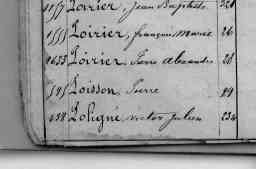 1157 Loirier, Jean Baptiste 321
1555 Loirier, françois Marie 26
1633 Loirier, Pierre Alexandre 28
595 Loisson, Pierre 89
488 Loligné, victor Julien 234